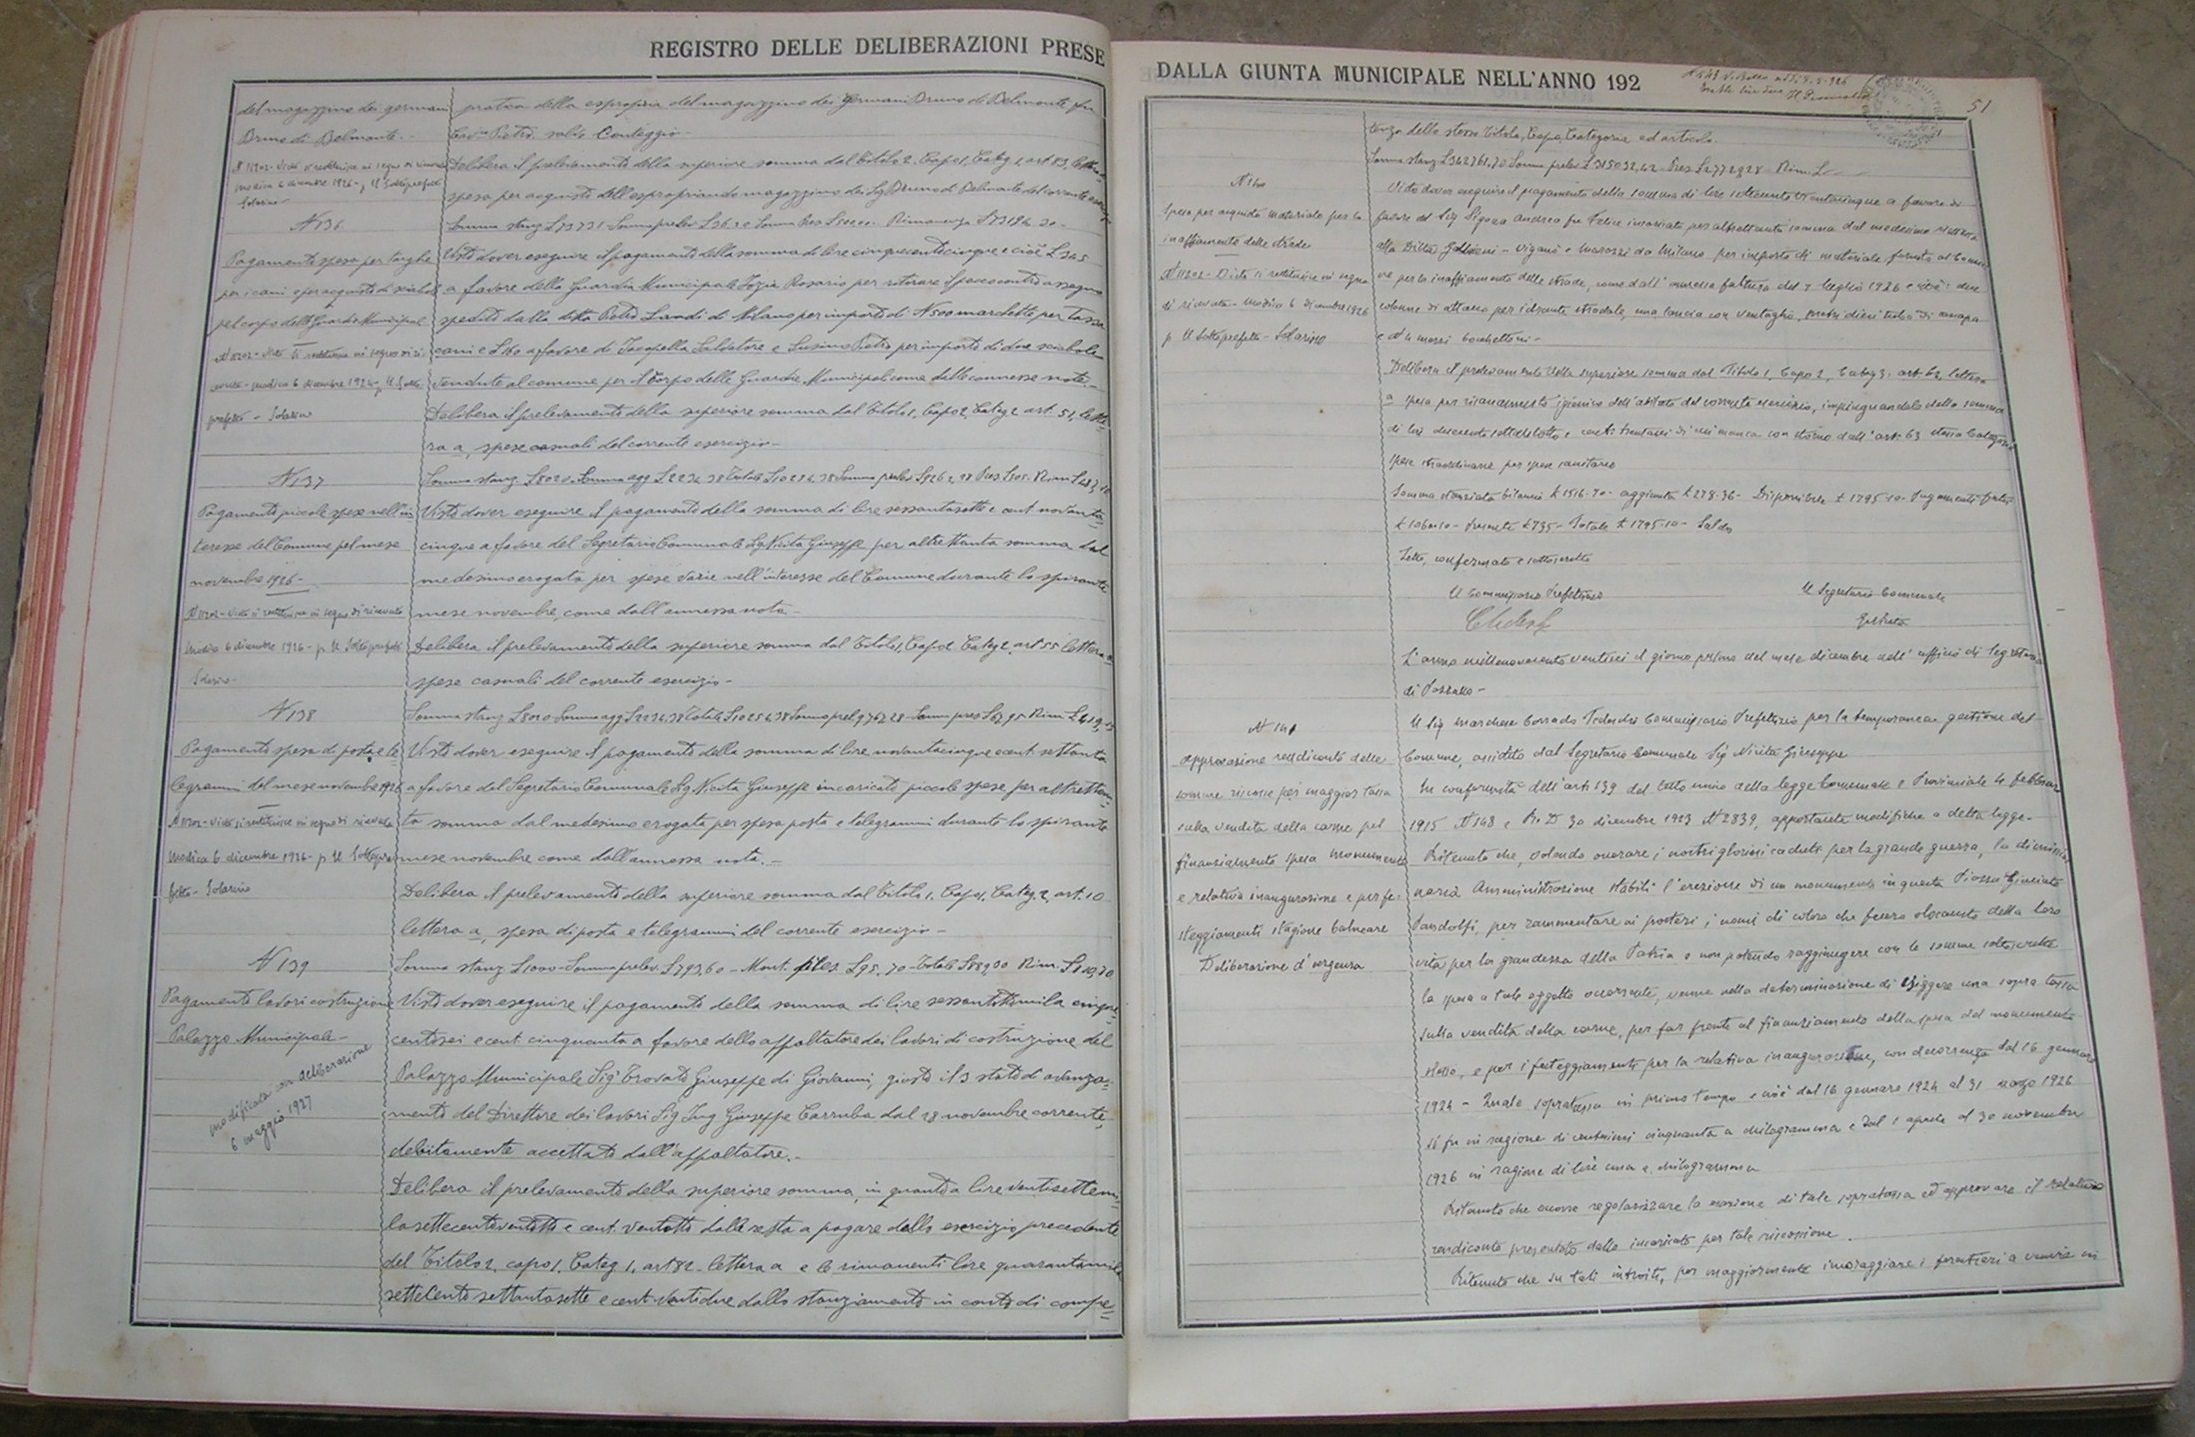 REGISTRO DELLE DELIBERAZIONI PRESE
del magazzino dei germani
Bruno di Belmonte.-
N 11202 - Visto si restituisce in segno di ricevuta
Modica 6 dicembre 1926 - p. Il Sottoprefetto
Solarino -
N 136
Pagamento spesa per targhe
per i cani e per acquisto di sciabole
pel corpo delle Guardie Municipali
N 11202 - Visto si restituisce in segno di ri
cevuta - Modica 6 dicembre 1926 - p. Il Sotto
prefetto - Solarino
N 137
Pagamento piccole spese nell'in
teresse del Comune pel mese
novembre 1926 -
N 11202 - Visto si restituisce in segno di ricevuta
Modica 6 dicembre 1926 - p. Il Sottoprefetto
Solarino -
N 138
Pagamento spesa di posta e te
legrammi del mese novembre 1926
N 11202 - Visto si restituisce in segno di ricevuta
Modica 6 dicembre 1926 - p Il Sottopre
fetto - Solarino
N 139
Pagamento lavori costruzione
Palazzo Municipale -
modificata con deliberazione
6 maggio 1927
pratica della espropria del magazzino dei germani Bruno di Belmonte fu
Pietro salvo Conteggio -
Delibera il prelevamento della superiore somma dal Titolo 2, Capo 1, Categ. 1, art 83, lettera
spesa per acquisto dell'espropriando magazzino dei Sig Bruno di Belmonte del corrente
Visto dover eseguire il pagamento della somma di lire cinquecentocinque e cioè L 365
a favore della Guardia Municipale Rosario per ritirare il pacco contro assegno
spedito dalla ditta Pietro Landi di Milano per importo di N 500 marchette per tassa
cani e L 140 a favore di Iacopella Salvatore e Susino Pietro per importo di due sciabole
vendute al comune per il Corpo delle Guardie Municipali come dalle connesse note.-
Delibera il prelevamento della superiore somma dal Titolo 1, Capo 2, Categ 2 art. 51, lette-
ra a, spese casuali del corrente esercizio -
Visto dover eseguire il pagamento della somma di lire sessantasette e cent novanta-
cinque a favore del Segretario Comunale Sig. Nicita Giuseppe per altrettanta somma dal
medesimo erogata per spese varie nell'interesse del Comune durante lo spirante
mese novembre, come dall'annessa nota -
Delibera il prelevamento della superiore somma dal Titolo 1, Capo 2 Categ 2, art 55 lettera a
spese casuali del corrente esercizio -
Visto dover eseguire il pagamento della somma di lire novantacinque e cent. settanta
a favore del Segretario Comunale Sig. Nicita Giuseppe incaricato piccole spese per altrettan-
ta somma dal medesimo erogata per spesa posta e telegrammi durante lo spirante
mese novembre come dall'annessa nota.-
Delibera il prelevamento della superiore somma dal Titolo 1, Capo 1, Categ. 2, art. 10
lettera a, spesa di posta e telegrammi del corrente esercizio -
Somma stanz L 1000 - Somma prelev. L 793,60 - Mont. L 95.70 - Totale L 889,30 Rim. L 110,70
Visto dover eseguire il pagamento della somma di lire sessantottomila cinque-
centosei e cent cinquanta a favore dello appaltatore dei lavori di costruzione del
Palazzo Municipale Sig Trovato Giuseppe di Giovanni, giusto il 3 stato di avanza-
mento del Direttore dei lavori Sig Ing Giuseppe Carruba dal 28 novembre corrente,
debitamente accettato dall'appaltatore.-
Delibera il prelevamento della superiore somma, in quanto a lire ventisettemi-
lasettecentoventotto e cent. ventotto dalla resta a pagare dello esercizio precedente
del Titolo 2, capo 1, Categ 1, art 82 lettera a e le rimanenti lire quarantamila
settecentosettantasette e cent. ventidue dallo stanziamento in conto di compe-
DALLA GIUNTA MUNICIPALE NELL'ANNO 192
51
N 140
Spesa per acquisto materiale per lo
inaffiamento delle strade
N 11202 - Visto si restituisce in segno
di ricevuta - Modica 6 dicembre 1926
p Il Sottoprefetto - Solarino
N 141
Approvazione rendiconto delle
somme riscosse per maggior tassa
sulla vendita della carne pel
finanziamento spesa monumento
e relativa inaugurazione e per fe-
steggiamenti stagione balneare
Deliberazione d'urgenza
tenza dello stesso Titolo, Capo, Categoria ed articolo.
Visto dover eseguire il pagamento della somma di lire settecento trentacinque a favore di
favore del Sig Sigona Andrea fu Felice incaricato per altrettanta somma dal medesimo
alla Ditta - Viganò e Marozzi da Milano per importo di materiale fornito al Comu-
ne per lo inaffiamento delle strade, come dall'annessa fattura del 7 luglio 1926 e cioè: due
colonne di attacco per idrante stradale, una lancia con ventaglio, metri dieci tubo di canapa
e N 4 mezzi bocchettoni -
Delibera il prelevamento della superiore somma dal Titolo 1, Capo 2, Categ 3. art. 62, lettera
a spesa per risanamento igienico dell'abitato del corrente esercizio, impinguandolo della somma
di lire duecento settantotto e cent. trentasei di cui manca con storno dall'art. 63 stessa Categoria
spese straordinarie per spese sanitarie
Somma stanziata bilancio L 1516.70 - aggiunta L 278.36 - Disponibile L 1795.10 - Pagamenti fatti
L 1060.10 - Presente L 735 - Totale L 1795.10 - Saldo
Letto, confermato e sottoscritto
Il Commissario Prefettizio
Il Segretario Comunale
L'anno millenovecentoventisei il giorno primo del mese dicembre nell'ufficio di Segreteria
di Pozzallo -
Il Sig marchese Corrado Tedeschi Commissario Prefettizio per la temporanea gestione del
Comune, assistito dal Segretario Comunale Sig Nicita Giuseppe
In conformità dell'art. 139 del testo unico della legge Comunale e Provinciale 4 febbraio
1915 N 148 e R. D 30 dicembre 1923 N 2839, apportante modifiche a detta legge.
Ritenuto che, volendo onorare i nostri gloriosi caduti per la grande guerra, la dimissio-
naria Amministrazione stabilì l'erezione di un monumento in questa Piazza Giunviato
Pandolfi, per rammentare ai posteri i nomi di coloro che fecero olocausto della loro
vita per la grandezza della Patria e non potendo raggiungere con le somme sottoscritte
la spesa a tale oggetto occorrente, venne nella determinazione di esiggere una sopra tassa
sulla vendita della carne, per far fronte al finanziamento della spesa del monumento
stesso, e per i festeggiamenti per la relativa inaugurazione, con decorrenza dal 16 gennaro
1924 - Quale sopratassa in primo tempo e cioè dal 16 gennaro 1924 al 31 marzo 1926
si fu in ragione di centesimi cinquanta a chilogramma e dal 1 aprile al 30 novembre
1926 in ragione di lire una a chilogramma
Ritenuto che occorre regolarizzare la esazione di tale sopratassa ed approvare il relativo
rendiconto presentato dallo incaricato per tale riscossione.
Ritenuto che su tali introiti, per maggiormente incoraggiare i forestieri a venire in